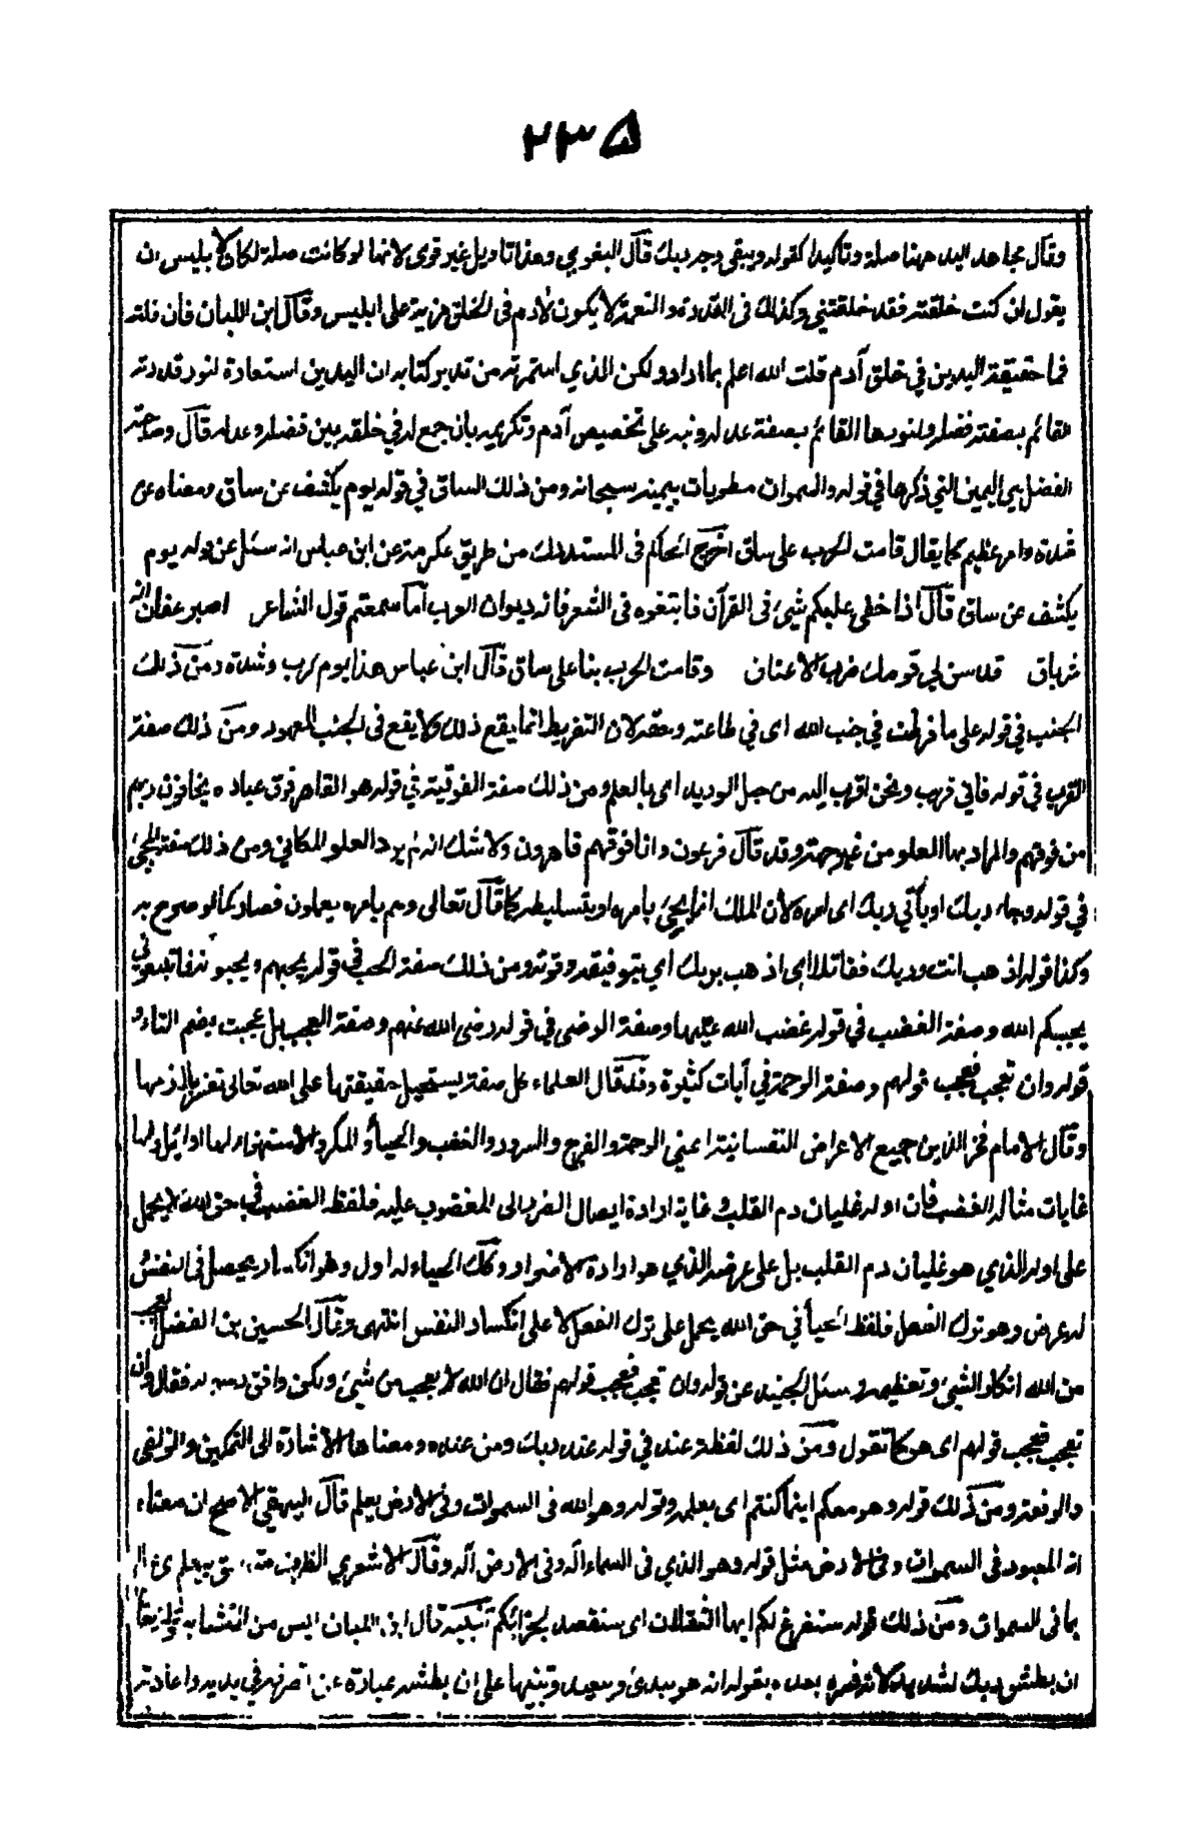 ٢٣٥
وقال مجاهد اليد ههنا صلة وتاكيد كقوله ويبقى وجه ربك قال البغوي وهذا تاويل غير قوى لانها لو كانت صلة لكان لابليس ان
يقول ان كنت خلقته فقد خلقتني وكذلك فى القدرة والنعمة لا يكون لأدم فى الخلق مزية على ابليس وقال ابن اللبان فأن قلت
فما حقيقة اليدين في خلق آدم قلت الله اعلم بما اراد ولكن الذي استثمرته من تدبر كتابه ان اليدين استعارة لنور قدرته
القائم بصفته فضله ولنورها القائم بصفة عدله ونبه على تخصيص آدم وتكريمه بان جمع له في خلقه بين فضله وعدله قال وصاحبة
الفضل هي اليمين التي ذكرها في قوله والسموات مطويات بيمينه سبحانه ومن ذلك الساق في قوله يوم يكشف عن ساق ومعناه عن
شدة وامر عظيم كما يقال قامت الحرب على ساق اخرج الحاكم فى المستدرك من طريق عكرمة عن ابن عباس انه سئل عن قوله يوم
يكشف عن ساق قال اذا خفى عليكم شيئ فى القرآن فابتغوه فى الشعر فانه ديوان العرب أما سمعتم قول الشاعر اصبر عفاق انه
شرباق قد سن لي قومك ضرب الاعناق وقامت الحرب بنا على ساق قال ابن عباس هذا يوم كرب وشدة ومن ذلك
الجنب في قوله على ما فرطت في جنب الله اى في طاعته وحقه لان التفريط انما يقع فى ذلك ولا يقع فى الجنب المعهود ومن ذلك صفة
القرب في قوله فاني قريب ونحن اقرب اليه من حبل الوريد اى بالعلم ومن ذلك صفة الفوقية في قوله وهو القاهر فوق عباده يخافون ربهم
من فوقهم والمراد بها العلو من غير جهة وقد قال فرعون وانا فوقهم قاهرون ولا شك انه لم يرد العلو المكاني ومن ذلك صفة المجيئ
في قوله وجاء ربك او يأتي ربك اى امره لأن الملك انما يجيئ بامره او بتسليطه كما قال تعالى وهم بامره يعملون فصار كما لو صرح به
وكذا قوله اذهب انت وربك فقاتلا اى اذهب بربك أي بتوفيقه وقوته ومن ذلك صفة الحب في قوله يحبهم ويحبونه فاتبعوني
يحببكم الله وصفة الغضب في قوله غضب الله عليها وصفة الرضى في قوله رضى الله عنهم وصفة العجب بل عجبت بضم التاء و
قوله وان تعجب فعجب قولهم وصفة الرحمة في آيات كثيرة وقد قال العلماء كل صفة يستحيل حقيقتها على الله تعالى تفسر بلازمها
وقال الامام فخر الدين جميع الاعراض النفسانية اعني الرحمة والفرح والسرور والغضب والحياء والمكر والاستهزاء لها اوائل ولها
غايات مثاله الغضب فان اوله غليان دم القلب وغايته ارادة ايصال الضرر الى المغضوب عليه فلفظ الغضب في حق الله لا يحمل
على اوله الذي هو غليان دم القلب بل على غرضه الذي هو ارادة الاضرار وكذلك الحياء له اول وهو انكسار يحصل فى النفس
له غرض وهو ترك الفعل فلفظ الحياء في حق الله يحمل على ترك الفعل لا على انكساد النفس انتهى وقال الحسين بن الفضل العجب
من الله انكار الشيئ وتعظيمه وسئل الجنيد عن قوله وان تعجب فعجب قولهم فقال ان الله لا يعجب من شيئ ولكن وافق رسوله فقال وان
تعجب فعجب قولهم اى هو كما تقول ومن ذلك لفظة عند في قوله عند ربك ومن عنده ومعناها الاشارة الى التمكين والزلفى
والرفعة ومن ذلك قوله وهو معكم اينما كنتم اى بعلمه وقوله وهو الله فى السموات وفى الارض يعلم قال البيهقي الاصح ان معناه
انه المعبود فى السموات وفى الارض مثل قوله وهو الذي فى السماء اله وفى الارض اله وقال الاشعري الظرف متعلق بيعلم اى عالم
بما فى السموات ومن ذلك قوله سنفرغ لكم ايها الثقلان اى سنقصد لجزائكم تنبيه قال ابن اللبان ليس من المتشابه قوله تعالى
ان بطش ربك لشديد لانه فسره بعده بقوله انه هو يبدئ ويعيد تنبيها على ان بطشه عبارة عن تصرفه في بدئه واعادته